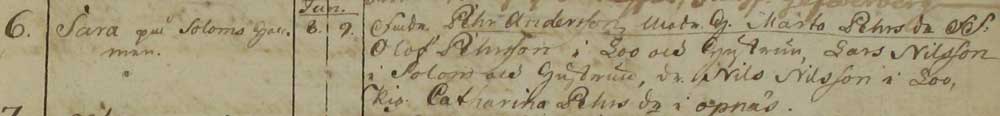 Jun.
6. Sara på Soloms Gaf- 8. 9. Fadr. Pehr Andersson, Modr. H. Marta Pehrs dr
men. Olof Pehrson i Loo och Hustrun, Lars Nilsson
i Solom och Hustrun, dr. Nils Nilsson i Loo,
Pig. Catharina Pehrs dr i opnäs.
7.